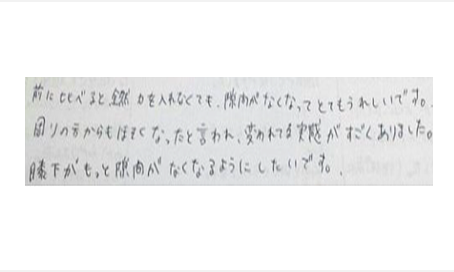 前に比べると全然力を入れなくても、隙間がなくなってとてもうれしいです。
周りの方からもほそくなったと言われ、変われてる実感がすごくありました。
膝下がもっと隙間がなくなるようにしたいです。